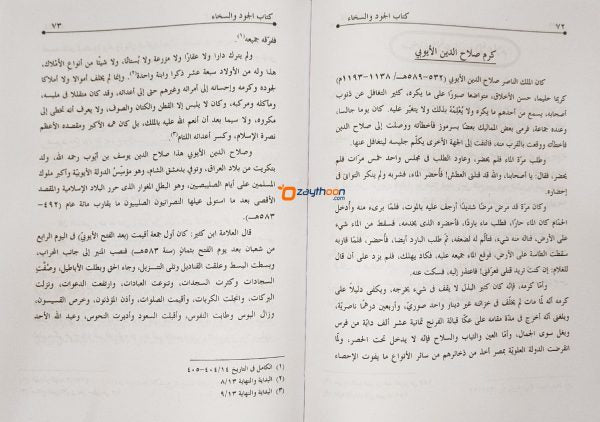 ٧٢
كتاب الجود والسخاء
كرم صلاح الدين الأيوبي
كان الملك الناصر صلاح الدين الأيوبي (٥٣٢-٥٨٩هـ/ ١١٣٨-١١٩٣م)
كريما حليما، حسن الأخلاق، متواضعا صبورًا على ما يكره، كثير التغافل عن ذنوب
أصحابه، يسمع من أحدهم ما يكره ولا يُعْلِمُهُ بذلك ولا يتغيّر عليه. كان يوما جالسا،
وعنده جماعة، فرمى بعض المماليك بعضًا بسرموز فأخطأته ووصلت إلى صلاح الدين
فأخطأته ووقعت بالقرب منه، فالتفت إلى الجهة الأخرى يكلّم جليسه ليتغافل عنها.
وطلب مرّة الماء فلم يحضر، وعاود الطلب في مجلس واحد خمس مرّات فلم
يحضر، فقال: يا أصحابنا، والله قد قتلني العطش! فأحضر الماء، فشربه ولم ينكر التواني في
إحضاره.
وكان مرّة قد مرض مرضًا شديدًا أرجف عليه بالموت، فلمّا برىء منه وأدخل
الحمّام كان الماء حارًّا، فطلب ماء باردًا، فأحضره الذي يخدمه، فسقط من الماء شيء
على الأرض، فناله منه شيء، فتألّم له لضعفه، ثمّ طلب البارد أيضا، فأحضر، فلمّا قاربه
سقطت الطاسة على الأرض، فوقع الماء جميعه عليه، فكاد يهلك، فلم يزد على أن قال
للغلام: إن كنت تريد قتلي فعرّفني! فاعتذر إليه، فسكت عنه.
وأمّا كرمه، فإنّه كان كثير البذل لا يقف في شيء يخرجه، ويكفي دليلاً على
كرمه أنّه لمّا مات لم يخلّف في خزائنه غير دينار واحد صوريّ، وأربعين درهمًا ناصريّة،
وبلغني أنّه أخرج في مدّة مقامه على عكّا قبالة الفرنج ثمانية عشر ألف دابّة من فرس
وبغل سوى الجمال، وأمّا العين والثياب والسلاح فإنّه لا يدخل تحت الحصر، ولمّا
انقرضت الدولة العلويّة بمصر أخذ من ذخائرهم من سائر الأنواع ما يفوت الإحصاء
كتاب الجود والسخاء
٧٣
ففرّقه جميعه(١).
ولم يترك دارا ولا عقارًا ولا مزرعة ولا بُستانًا، ولا شيئًا من أنواع الأملاك،
هذا وله من الأولاد سبعة عشر ذكرا وابنة واحدة(٢). وإنما لم يخلف أموالا ولا أملاكا
لجوده وكرمه وإحسانه إلى أمرائه وغيرهم حتى إلى أعدائه، وقد كان متقللا في ملبسه،
ومأكله ومركبه، وكان لا يلبس إلا القطن والكتان والصوف، ولا يعرف أنه تخطى إلى
مكروه، ولا سيما بعد أن أنعم الله عليه بالملك، بل كان همه الأكبر ومقصده الأعظم
نصرة الإسلام، وكسر أعدائه اللئام(٣).
وصلاح الدين الأيوبي هذا صلاح الدين يوسف بن أيوب رحمه الله، ولد
بتكريت من بلاد العراق، وتوفي بدمشق الشام، وهو مؤسّس الدولة الأيوبيّة وأكبر ملوك
المسلمين على أيام الصليبيين، وهو البطل المغوار الذي حرر البلاد الإسلامية والمقصد
الأقصى بعد ما استولى عيلها النصرانيون الصليبيون ما يقارب مائة عام (٤٩٢-
٥٨٣هـ).
قال العلامة ابن كثير: كان أول جمعة أقيمت (بعد الفتح الأيوبيّ) في اليوم الرابع
من شعبان بعد يوم الفتح بثمان (سنة ٥٨٣هـ)، فنصب المنبر إلى جانب المحراب،
وبسطت البسط وعلقت القناديل وتلى التنزيل، وجاء الحق وبطلت الأباطيل، وصُفّت
السجادات وكثرت السجدات، وتنوعت العبادات، وارتفعت الدعوات، ونزلت
البركات، وانجلت الكربات، وأقيمت الصلوات، وأذن المؤذنون، وخرس القسيسون،
وزال البوس وطابت النفوس، وأقبلت السعود وأدبرت النحوس، وعبد الله الأحد
(١) الكامل في التاريخ ٤٠٤/١٤-٤٠٥
(٢) البداية والنهاية ٨/١٣
(٣) البداية والنهاية ٩/١٣
Ozaythoon
.com